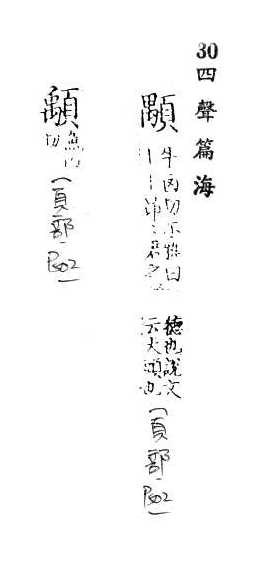 30四聲篇海
顒
牛凶切尒雅曰
德也說文
云大頭也
（頁部P802）
魚
切
（頁部P802）